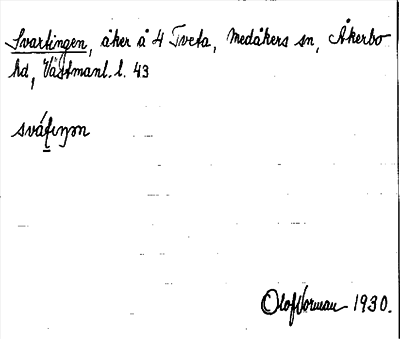 Svartingen, åker å 4 Tveta, Medåkers sn, Åkerbo
hd, Västmanl. l. 43
sváʈıŋɔn
Olof Norman 1930.